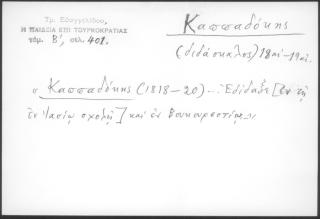 Τρ. Εὐαγγελίδου,
Η ΠΑΙΔΕΙΑ ΕΠΙ ΤΟΥΡΚΟΚΡΑΤΙΑΣ
τόμ. Β', σελ. 401.
Καππαδόκης
(διδάσκαλος) 18αι-19αι.
ο Καππαδόκης (1818-20) - Ἐδίδαξε [ἐν τῇ
ἐν Ἰασίῳ σχολῇ] καί ἐν Βουκουρεστίῳ